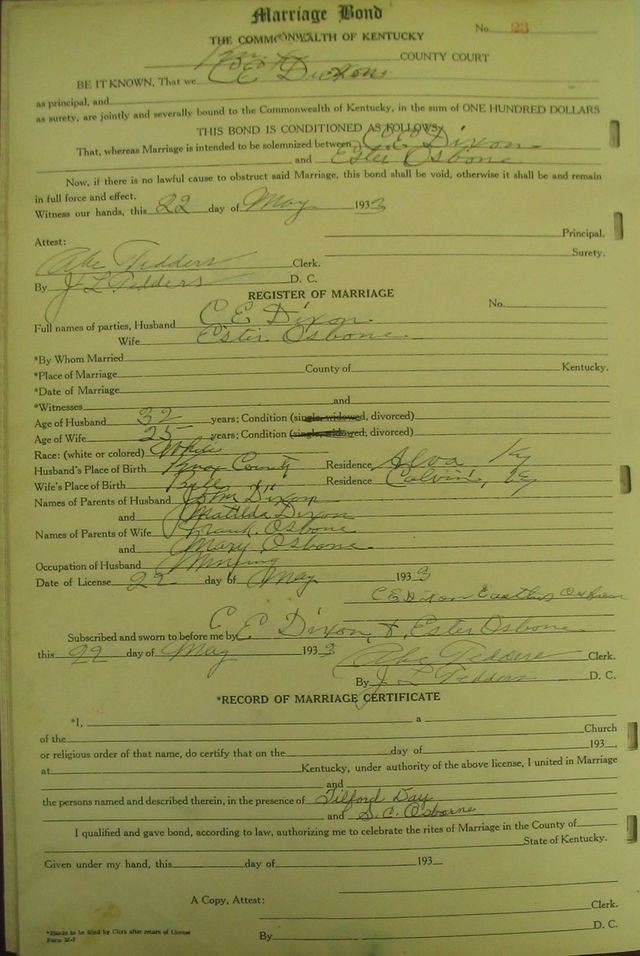 Marriage Bond
No. 23
THE COMMONWEALTH OF KENTUCKY
COUNTY COURT
BE IT KNOWN, That we C E Dixon
as principal, and
as surety, are jointly and severally bound to the Commonwealth of Kentucky, in the sum of ONE HUNDRED DOLLARS
THIS BOND IS CONDITIONED AS FOLLOWS:
That, whereas Marriage is intended to be solemnized between C E Dixon
and Ester Osbone
Now, if there is no lawful cause to obstruct said Marriage, this bond shall be void, otherwise it shall be and remain
in full force and effect.
Witness our hands, this 22 day of May 1933
Principal.
Attest:
Surety.
Abe Tedders Clerk.
By J L Tedders D. C.
REGISTER OF MARRIAGE
No.
Full names of parties, Husband C E Dixon
Wife Ester Osbone
*By Whom Married
*Place of Marriage County of Kentucky.
*Date of Marriage
*Witnesses and
Age of Husband 32 years; Condition (single, widowed, divorced)
Age of Wife 25 years; Condition (single, widowed, divorced)
Race: (white or colored) White
Husband's Place of Birth Knox County Residence Alva Ky
Wife's Place of Birth Bell Residence Calvin, Ky
Names of Parents of Husband John Dixon
and Matilda Dixon
Names of Parents of Wife Frank Osbone
and Mary Osbone
Occupation of Husband Mining
Date of License 22 day of May 1933
C E Dixon Osbone
Subscribed and sworn to before me by C E Dixon, & Ester Osbone
this 22 day of May 1933 Abe Tedders Clerk.
By J L Tedders D. C.
*RECORD OF MARRIAGE CERTIFICATE
*I, a
of the Church
or religious order of that name, do certify that on the day of 193
at Kentucky, under authority of the above license, I united in Marriage
and
the persons named and described therein, in the presence of Tilford Day
and S. C. Osborne
I qualified and gave bond, according to law, authorizing me to celebrate the rites of Marriage in the County of
State of Kentucky.
Given under my hand, this day of 193
A Copy, Attest:
Clerk.
By D. C.
*Blanks to be filled by Clerk after return of License
Form M-7